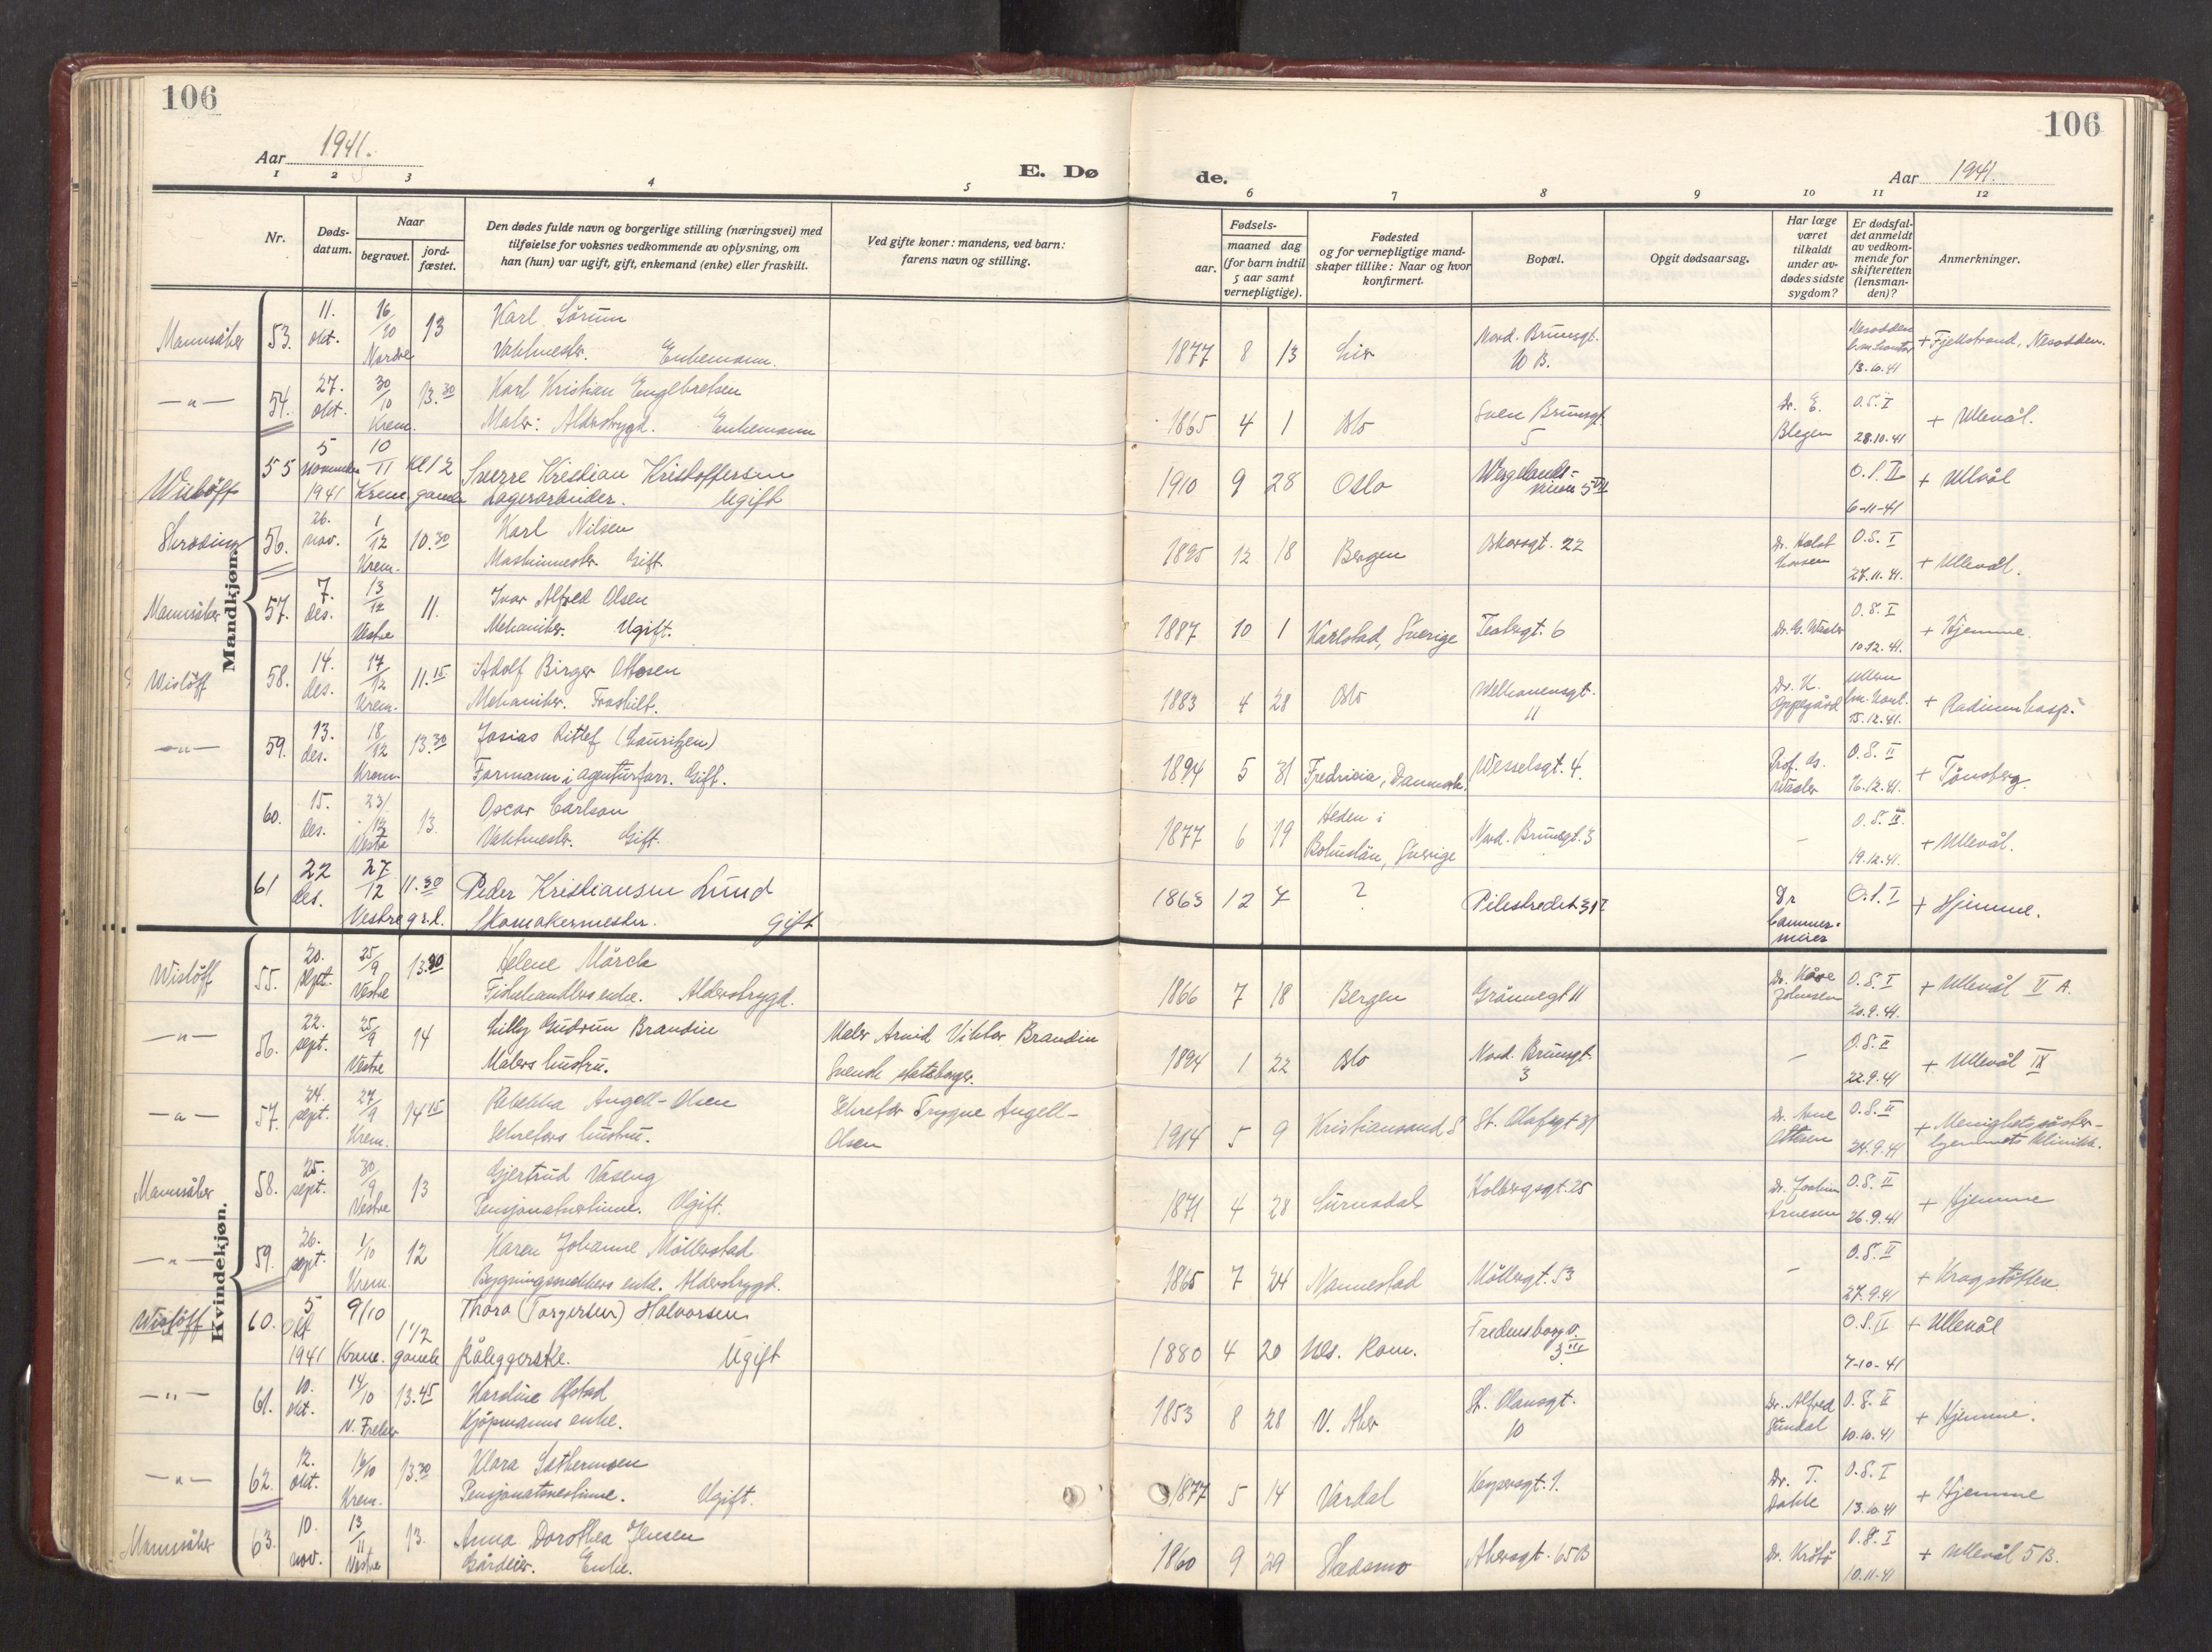 106
106
Aar 1941.
E. Dø
de.
Aar 1941.
1 2 3 4 5 6 7 8 9 10 11 12
Nr.
Døds-
datum.
Naar
begravet.
jord-
fæstet.
Den dødes fulde navn og borgerlige stilling (næringsvei) med
tilføielse for voksnes vedkommende av oplysning, om
han (hun) var ugift, gift, enkemand (enke) eller fraskilt.
Ved gifte koner: mandens, ved barn:
farens navn og stilling.
Fødsels-
aar.
maaned dag
(for barn indtil
5 aar samt
vernepligtige).
Fødested
og for vernepligtige mand-
skaper tillike: Naar og hvor
konfirmert.
Bopæl.
Opgit dødsaarsag.
Har læge
været
tilkaldt
under av-
dødes sidste
sygdom?
Er dødsfal-
det anmeldt
av vedkom-
mende for
skifteretten
(lensman-
den)?
Anmerkninger.
Mandkjøn.
Mannsåker 53. 11. okt. 16/10 Nordre 13 Karl Sörum 1877 8 13 Lier Nord. Brunsgt. 10 B. Nesodden 13.10.41 + Fjellstrand, Nesodden.
Vaktmester. Enkemann.
—"— 54. 27. okt. 30/10 Krem. 13.30 Karl Kristian Englebretsen 1865 4 1 Oslo Sven Brunsgt. 5 Dr. E. Blegen O.S. I 28.10.41 + Ullevål.
Maler: Alderstrygd. Enkemann
Wislöff 55 5 november 1941 10/11 Krem. gamle kl 12 Sverre Kristian Kristoffersen 1910 9 28 Oslo O.S. II 6-11-41 + Ullvål
Lagerarbeider. Ugift
56. 26. nov. 1/12 Krem. 10.30 Karl Nilsen 1895 12 18 Bergen Oskarsgt. 22 Dr. Holst Larsen O.S. I 27.11.41. + Ullevål.
Maskinmester. Gift.
Mannsåker 57. 7. des. 13/12 Vestre 11. Ivar Alfred Olsen 1887 10 1 Karlstad, Sverige 6 O.S. I 10.12.41. + Hjemme.
Mekaniker. Ugift.
Wislöff 58. 14. des. 17/12 Krem. 11.15 Adolf Birger Ottosen 1883 4 28 Oslo Welhavensgt. 11 Dr. K. Oppegård 15.12.41. + Radiumhosp.
Mekaniker. Fraskilt.
—"— 59. 13. des. 18/12 Krem. 13.30 Josias Ditlef (Lauritzen) 1894 5 31 Fredricia, Danmark. Wesselsgt. 4. Prof. O.S. II 16.12.41. + Tönsberg.
Formann i agenturforr. Gift.
60. 15. des. 23/12 Vestre 13. Oscar Carlson 1877 6 19 Heden i Bohuslän, Sverige Nord. Brunsgt. 3 - O.S. II. 19.12.41. + Ullevål.
Vaktmester. Gift.
61 22 des. 27/12 Vestre g.r.l. 11.30 Peder Kristiansen Lund 1863 12 7 ? Pilestredet 31 Dr Cammer-meier O.S. I + Hjemme.
Skomakermester. Gift
Kvindekjøn.
Wislöff 55. 20. sept. 25/9 Vestre 13.30 Helene Mörck 1866 7 18 Bergen Grönnegt 11 Dr. Kåre Johnsen O.S. I 20.9.41. + Ullevål II A.
Fiskehandlers enke. Alderstrygd.
—"— 56. 22. sept. 25/9 Vestre 14 Lilly Gudrun Brandin Maler Arvid Viktor Brandin 1894 1 22 Oslo Nord. Brunsgt. 3 - O.S. II 22.9.41 + Ullevål IX
Malers hustru. Svensk statsborger.
—"— 57. 24. sept. 27/9 Krem. 14 15 Rebekka Angell-Olsen Sekretær Trygve Angell- 1914 5 9 Kristiansand S St. Olafsgt 31 Dr. Arne Ottesen O.S. II 24.9.41 + Menighetssöster-
Sekretærs hustru. Olsen hjemmets klinikk.
Mannsåker 58. 25. sept. 30/9 Vestre 13 Gjertrud Vaseng 1871 4 28 Surnadal Holbergsgt. 25 Dr. Joakim Arnesen O.S. II 26.9.41 + Hjemme
Pensjonatvertinne. Ugift.
—"— 59. 26. sept. 1/10 Krem. 12 Karen Johanne Möllerstad 1865 7 24 Nannestad Möllergt. 53 - O.S. II 27.9.41 + Krogstötten
Bygningssnekkers enke. Alderstrygd.
Wislöff 60. 5 okt 1941 9/10 Krem. gamle 1 1/2 Thora (Torgersen) Halvorsen 1880 4 20 Nes. Rom. Fredensborgv. 3 III O.S. II 7-10-41 + Ullevål
Ugift
—"— 61. 10. okt. 14/10 V. Frelser 13.45 Karoline Ofstad 1853 8 28 V. Aker St. Olavsgt. 10 Dr. Alfred Sundal O.S. II 10.10.41 + Hjemme.
Kjöpmanns enke.
—"— 62. 12. okt. 16/10 Krem. 13.30 Klara Sathermoen 1877 5 14 Vardal Keysersgt. 1. Dr. T. Dahle O.S. I 13.10.41 + Hjemme
Pensjonatsvertinne. Ugift.
Mannsåker 63. 10. nov. 13/11 Vestre 13. Anna Dorothea Jensen 1860 9 29 Skedsmo Akersgt. 65 B O.S. I 10.11.41 + Ullevål 5 B.
Gårdeier. Enke.